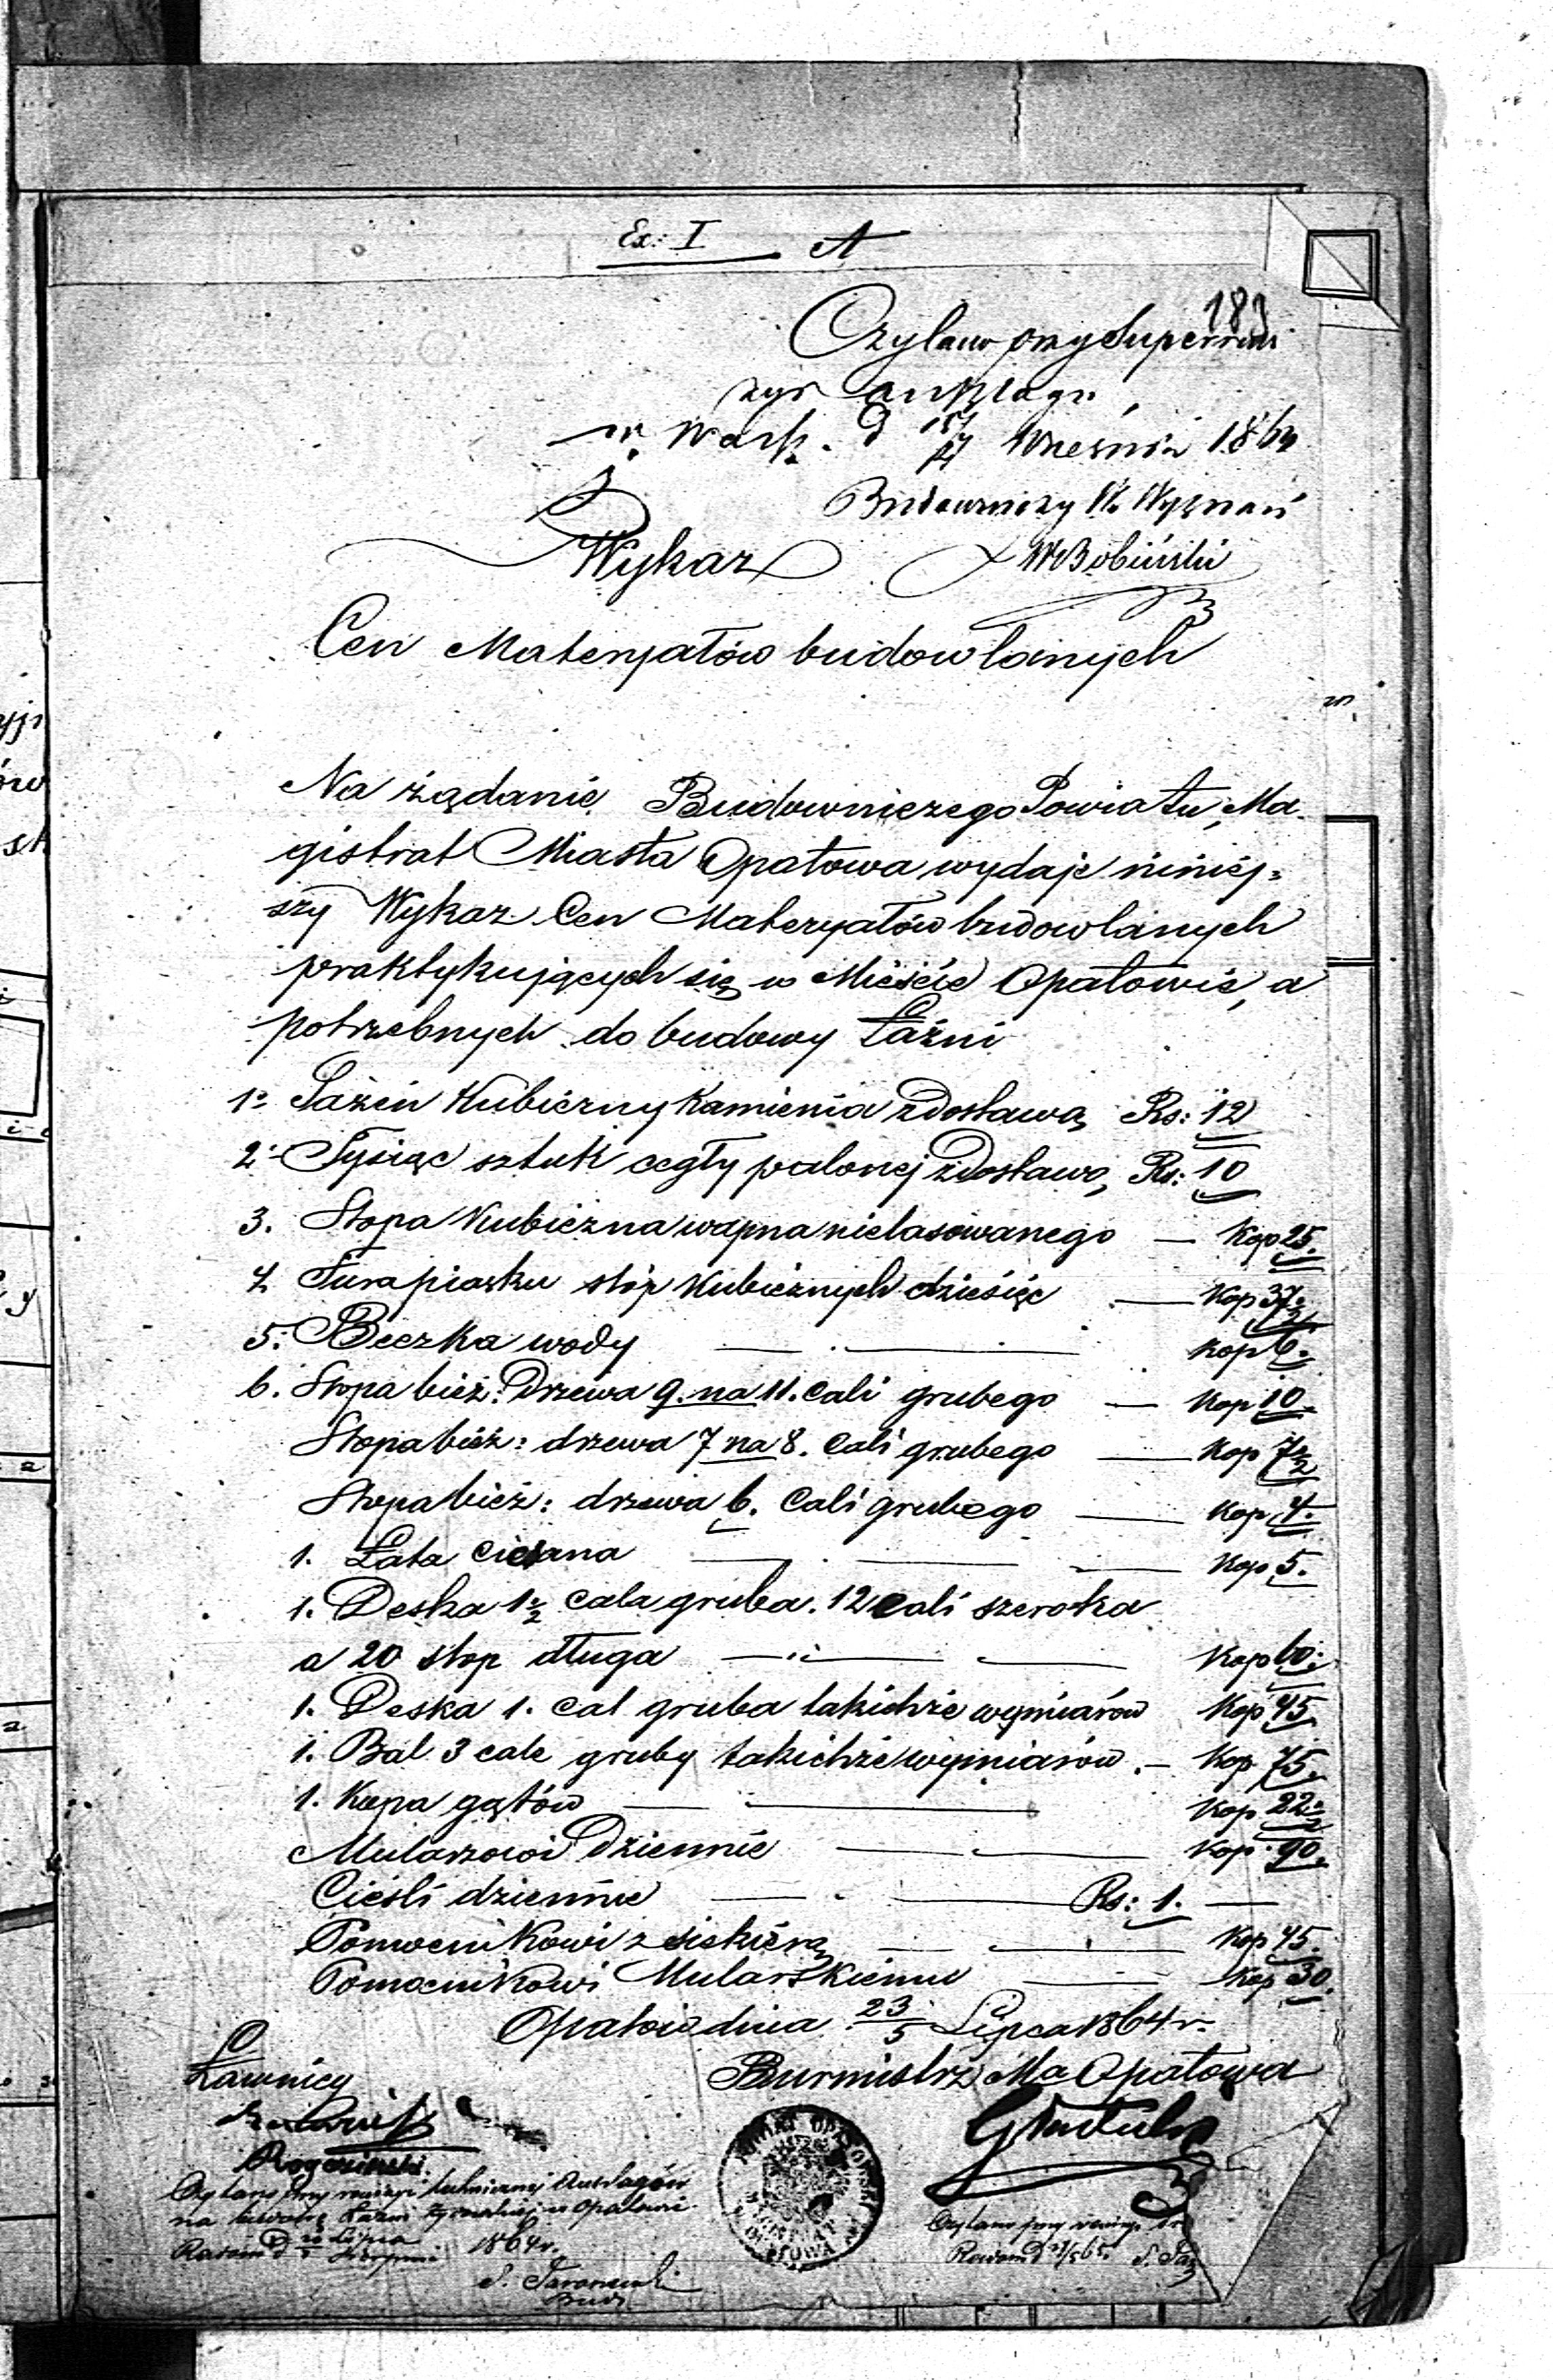 Ex: I A
183
Czytano przy Superrewi
zyi anszlagu
w Warsz. d 17 Września 1864
Budowniczy W. Wyznań
WBobiński
Wykaz
Cen Materyałów budowlanych
Na żądanie Budowniczego Powiatu, Ma-
gistrat Miasta Opatowa wydaje niniéj=
szy Wykaz Cen Materyałów budowlanych
praktykujących się w Mieście Opatowie, a
potrzebnych do budowy Łaźni
1. Sążeń Kubiczny Kamienia z dostawą Rs: 12
2. Tysiąc sztuk cegły palonej z dostawą Rs: 10
3. Stopa Kubiczna wapna nielasowanego — Kop 25.
4. Fura piasku stóp Kubicznych dziesięć — Kop 37½
5. Beczka wody — Kop 6.
6. Stopa bież: Drzewa 9. na 11. Cali grubego — Kop 10.
Stopa bież: drzewa 7 na 8. Cali grubego — Kop 7½
Stopa bież: drzewa 6. Cali grubego — Kop 4.
1. Łata Ciesana — Kop 5.
1. Deska 1½ Cala gruba. 12 Cali szeroka
a 20 stop długa — Kop 60.
1. Deska 1. Cal gruba takichże wymiarów Kop 45
1. Bal 3 cale gruby takichże wymiarów. — Kop 75.
1. Kopa gątów — Kop 22½
Mularzowi Dziennie — Kop. 90.
Cieśli dziennie — Rs: 1. —
Pomocnikowi z siekiérą — Kop 45.
Pomocnikowi Mularskiemu — Kop 30.
Opatów dnia 23/5 Lipca 1864 r.
Ławnicy
Burmistrz Mta Opatowa
Rogoziński
Czytano przy rewizyi technicznej Anszlagów
na budowę Łaźni żydowskiej w Opatowie
Radom d Lipca Sierpnia 1864 r.
Czytano przy rewizyi
Radom d